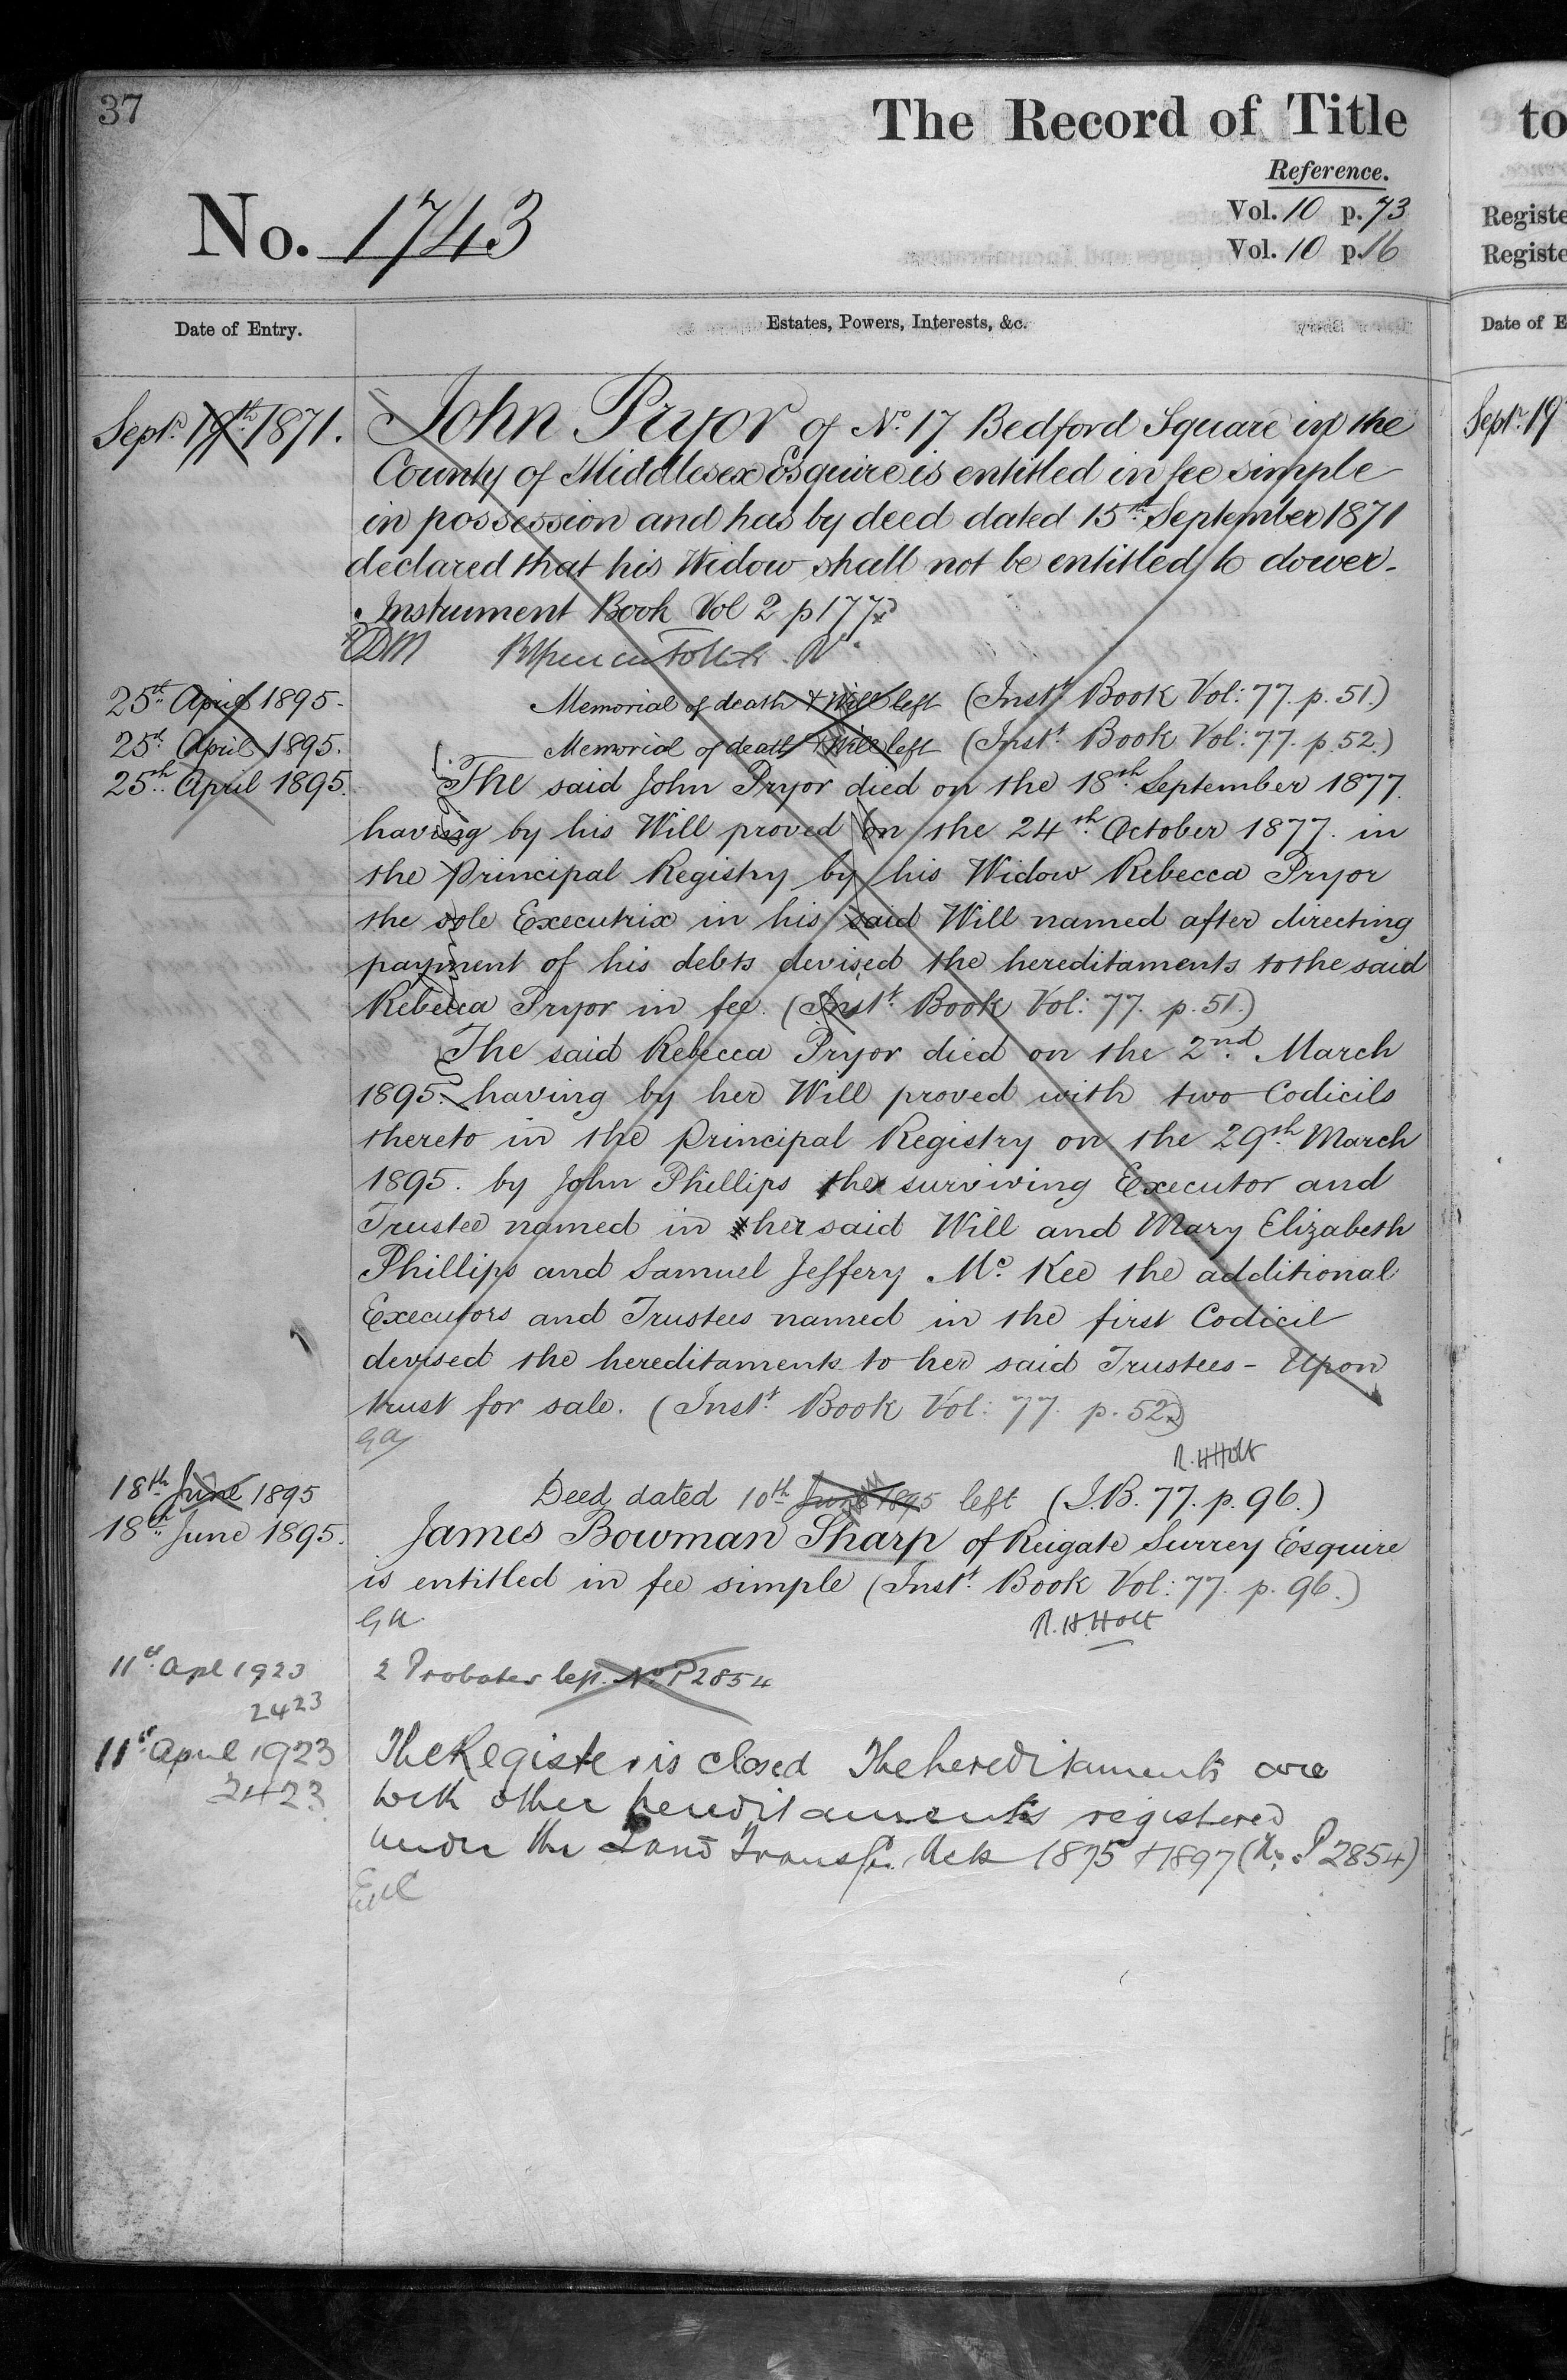 37
The Record of Title
Reference.
No. 1743
Vol. 10 p. 73
Vol. 10 p. 16
Date of Entry.
Estates, Powers, Interests, &c.
Septr. 19th 1871.
John Pryor of No. 17 Bedford Square in the
County of Middlesex Esquire is entitled in fee simple
in possession and has by deed dated 15th September 1871
declared that his Widow shall not be entitled to dower.
Instrument Book Vol 2 p 177
DM
25th April 1895. Memorial of death & Will left (Instt. Book Vol: 77. p. 51.)
25th April 1895. Memorial of death & Will left (Instt. Book Vol: 77. p. 52.)
25th April 1895. The said John Pryor died on the 18th September 1877.
having by his Will proved on the 24th October 1877. in
the Principal Registry by his Widow Rebecca Pryor
the sole Executrix in his said Will named after directing
payment of his debts devised the hereditaments to the said
Rebecca Pryor in fee. (Instt. Book Vol: 77. p. 51.)
The said Rebecca Pryor died on the 2nd March
1895. having by her Will proved with two Codicils
thereto in the Principal Registry on the 29th March
1895. by John Phillips the surviving Executor and
Trustee named in her said Will and Mary Elizabeth
Phillips and Samuel Jeffery Mc. Kee the additional
Executors and Trustees named in the first Codicil
devised the hereditaments to her said Trustees - Upon
trust for sale. (Instt. Book Vol: 77. p. 52.)
R. H. Holt
18th June 1895 Deed dated 10th June 1895 left (I.B. 77. p. 96.)
18th June 1895. James Bowman Sharp of Reigate Surrey Esquire
is entitled in fee simple (Instt. Book Vol: 77. p. 96.)
R. H. Holt
11th Apl 1923 2 Probates left. No. P2854
2423
11th April 1923 The Register is closed The hereditaments are
2423 with other hereditaments registered
under the Land Transfer Acts 1875 & 1897 (No. P2854)
to
Registe
Registe
Date of E
Septr. 19